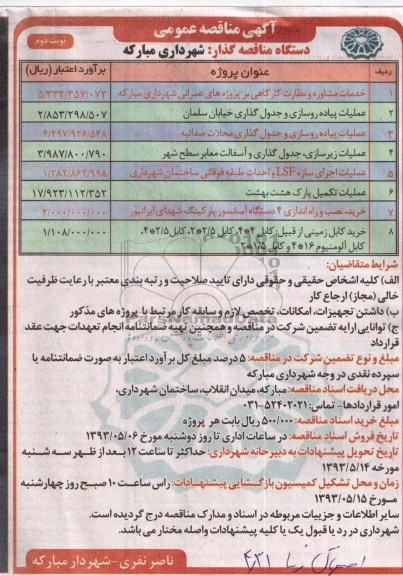 آگهی مناقصه عمومی
نوبت دوم
دستگاه مناقصه گذار: شهرداری مبارکه
ردیف عنوان پروژه برآورد اعتبار (ریال)
۱ خدمات مشاوره و نظارت کارگاهی بر پروژه های عمرانی شهرداری مبارکه ۵/۳۳۲/۳۵۷/۰۷۳
۲ عملیات پیاده روسازی و جدول گذاری خیابان سلمان ۲/۸۵۳/۲۹۸/۵۰۷
۳ عملیات پیاده روسازی و جدول گذاری محلات صفائیه ۴/۴۹۷/۹۲۶/۵۴۸
۴ عملیات زیرسازی، جدول گذاری و آسفالت معابر سطح شهر ۳/۹۸۷/۸۰۰/۷۹۰
۵ عملیات اجرای سازه LSF و احداث طبقه فوقانی ساختمان شهرداری ۱/۲۸۲/۸۶۲/۹۹۸
۶ عملیات تکمیل پارک هشت بهشت ۱۷/۹۲۳/۱۱۲/۳۵۲
۷ خرید، نصب و راه اندازی ۴ دستگاه آسانسور پارکینگ شهدای ایرانپور ۲/۰۰۰/۰۰۰/۰۰۰
۸ خرید کابل زمینی از قبیل: کابل ۴*۴، کابل ۲/۵*۲، کابل ۲/۵*۴، ۱/۱۰۸/۰۰۰/۰۰۰
کابل آلومنیوم ۱۶*۴ و کابل ۱/۵*۲
شرایط متقاضیان:
الف) کلیه اشخاص حقیقی و حقوقی دارای تایید صلاحیت و رتبه بندی معتبر با رعایت ظرفیت
خالی (مجاز) ارجاع کار
ب) داشتن تجهیزات، امکانات، تخصص لازم و سابقه کار مرتبط با پروژه های مذکور
ج) توانایی ارایه تضمین شرکت در مناقصه و همچنین تهیه ضمانتنامه انجام تعهدات جهت عقد
قرارداد
مبلغ و نوع تضمین شرکت در مناقصه: ۵ درصد مبلغ کل برآورد اعتبار به صورت ضمانتنامه یا
سپرده نقدی در وجه شهرداری مبارکه
محل دریافت اسناد مناقصه: مبارکه، میدان انقلاب، ساختمان شهرداری،
امور قراردادها- تماس: ۵۲۴۰۲۰۲۱-۰۳۱
مبلغ خرید اسناد مناقصه: ۵۰۰/۰۰۰ ریال بابت هر پروژه
تاریخ فروش اسناد مناقصه: در ساعات اداری تا روز دوشنبه مورخ ۱۳۹۳/۰۵/۰۶
تاریخ تحویل پیشنهادات به دبیرخانه شهرداری: حداکثر تا ساعت ۱۲ بعد از ظهر سه شنبه
مورخه ۱۳۹۳/۵/۱۴
زمان و محل تشکیل کمیسیون بازگشایی پیشنهادات: راس ساعت ۱۰ صبح روز چهارشنبه
مورخ ۱۳۹۳/۰۵/۱۵
سایر اطلاعات و جزییات مربوطه در اسناد و مدارک مناقصه درج گردیده است.
شهرداری در رد یا قبول یک یا کلیه پیشنهادات واصله مختار می باشد.
ناصر نفری - شهردار مبارکه
۴/۳۱